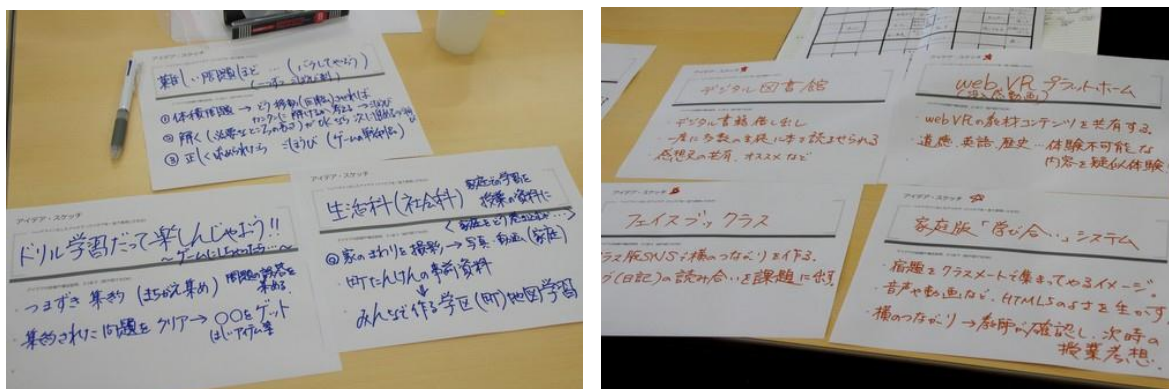 アイデア・スケッチ
難しい問題ほど…(どうしてやろう)
①体積問題→どう移動(回転)させれば
カンタンに解けるか考える→
②解く(必要なところの長さ)が
③正しく求められたら ごほうび(ゲームの
アイデア・スケッチ
ドリル学習だって楽しんじゃおう!!
〜ゲームにしちゃったら…〜
・つまずき集約(まちがえ集め) 問題の誤答を
集める。
・集約された問題をクリア→〇〇をゲット
アイデア・スケッチ
生活科(社会科) 家庭での学習を
授業の資料に
◎家のまわりを撮影→写真・動画(家庭)
・町たんけんの事前資料
↓
みんなで作る学区(町)地図学習
アイデア・スケッチ
デジタル図書館
・デジタル書籍貸し出し
・一度に多数の生徒に本を読ませられる
・感想文の共有、オススメなど
アイデア・スケッチ
web VR プラットホーム
(没入感動画)
・web VRの教材コンテンツを共有する。
・道徳、英語、歴史…体験不可能な
内容を疑似体験
アイデア・スケッチ
フェイスブッククラス
ラス版SNSで横のつながりを作る。
グ(日記)の読み合いを課題に出す。
アイデア・スケッチ
家庭版「学び合い」システム
・宿題をクラスメートで集まってやるイメージ。
・音声や動画など、HTML5のよさを生かす。
・横のつながり→教師が確認し、次時の
授業考想。